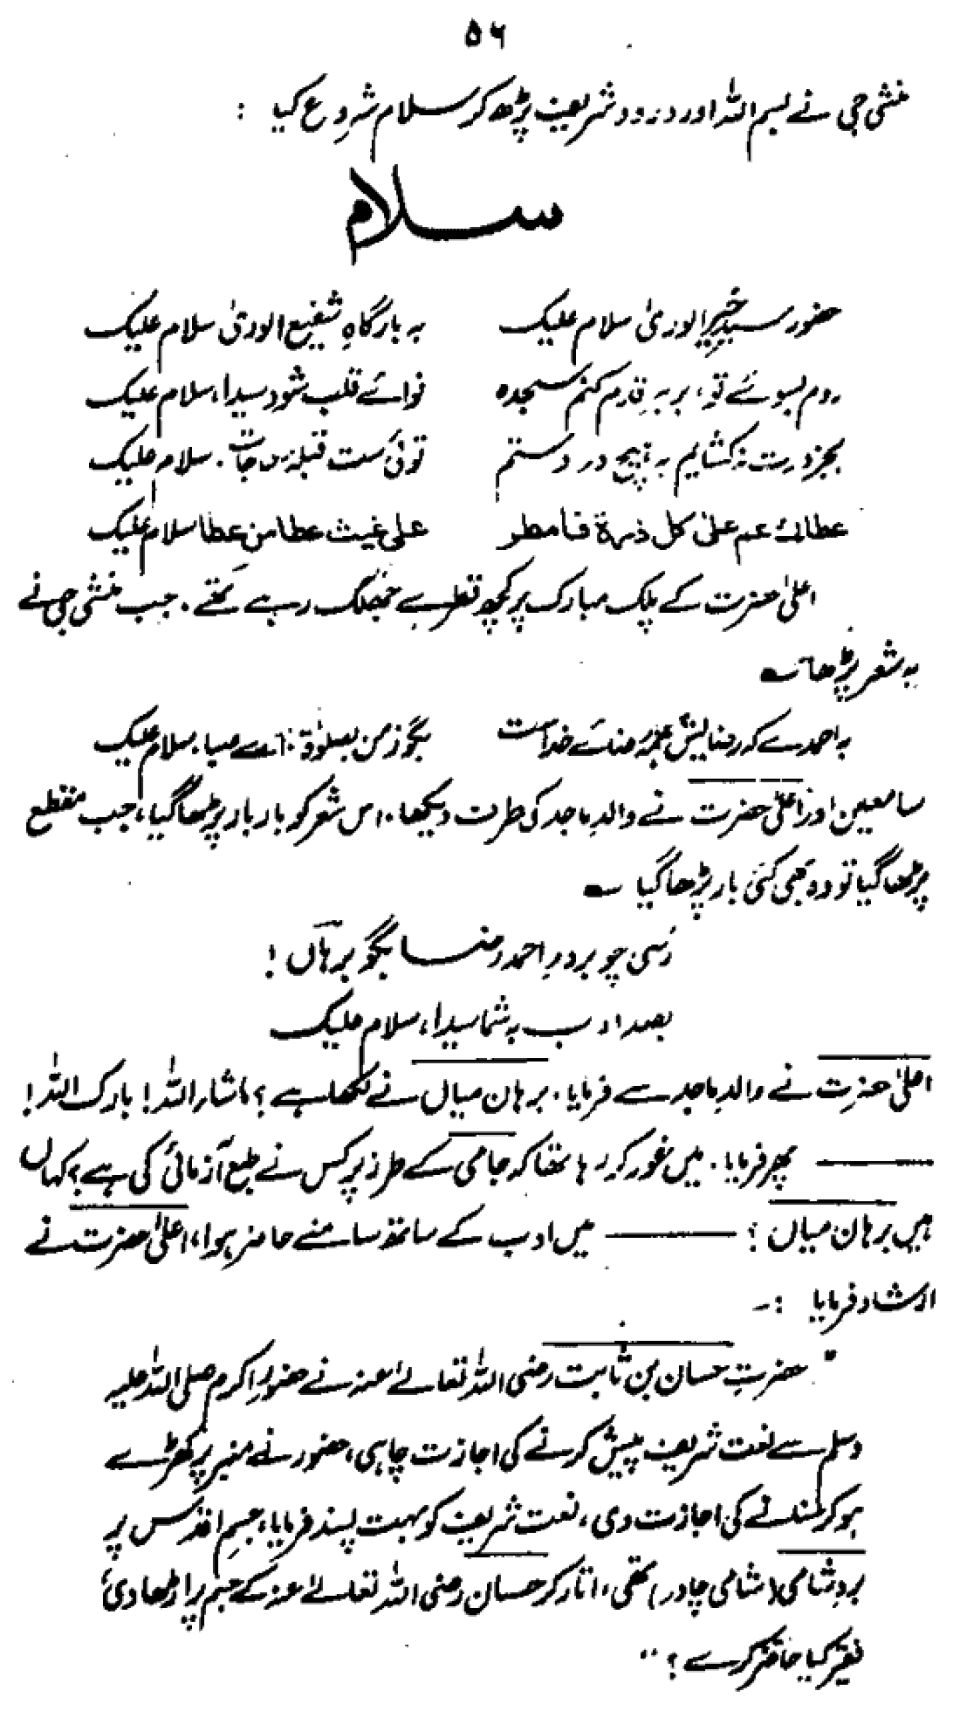 ۵۶
منشی جی نے بسم اللہ اور درود شریف پڑھ کر سلام شروع کیا :
سلام
حضور سیدِ خیر الوریٰ سلام علیک     بہ بارگاہِ شفیع الوریٰ سلام علیک
روم بسوئے تو، بر ہر قدم کنم سجدہ     نوائے قلب شود سیدا، سلام علیک
بجز درت نہ کشایم بہ ہیچ در دستم     توئی ست قبلۂ حاجات، سلام علیک
عطائک عم علیٰ کل ذرۃ فامطر     علی غیث عطا من عطا سلام علیک
اعلیٰ حضرت کے پلک مبارک پر کچھ قطرے جھلک رہے تھے۔ جب منشی جی نے
یہ شعر پڑھا ؎
بہ احمدے کہ رضایش رضائے خداست     بگو زمن بصلوٰۃ اے صبا، سلام علیک
سامعین اور اعلیٰ حضرت نے والد ماجد کی طرف دیکھا۔ اس شعر کو بار بار پڑھا گیا، جب مقطع
پڑھا گیا تو وہ بھی کئی بار پڑھا گیا ؎
رسی چو بر درِ احمد رضا بگو برہاں !
بصد ادب بہ شما سیدا، سلام علیک
اعلیٰ حضرت نے والد ماجد سے فرمایا۔ برہان میاں نے لکھا ہے؟ ماشاء اللہ! بارک اللہ!
——— پھر فرمایا۔ میں غور کر رہا تھا کہ جامی کے طرز پر کس نے طبع آزمائی کی ہے؟ کہاں
ہیں برہان میاں ؟ ——— میں ادب کے ساتھ سامنے حاضر ہوا، اعلیٰ حضرت نے
ارشاد فرمایا :۔
" حضرتِ حسان بن ثابت رضی اللہ تعالیٰ عنہ نے حضورِ اکرم صلی اللہ علیہ
وسلم سے نعت شریف پیش کرنے کی اجازت چاہی، حضور نے منبر پر کھڑے
ہو کر سنانے کی اجازت دی، نعت شریف کو بہت پسند فرمایا، جسمِ اقدس پر
بردِ شامی (شامی چادر) تھی، اتار کر حسان رضی اللہ تعالیٰ عنہ کے جسم پر اڑھا دی،
فقیر کیا حاضر کرے ؟ "